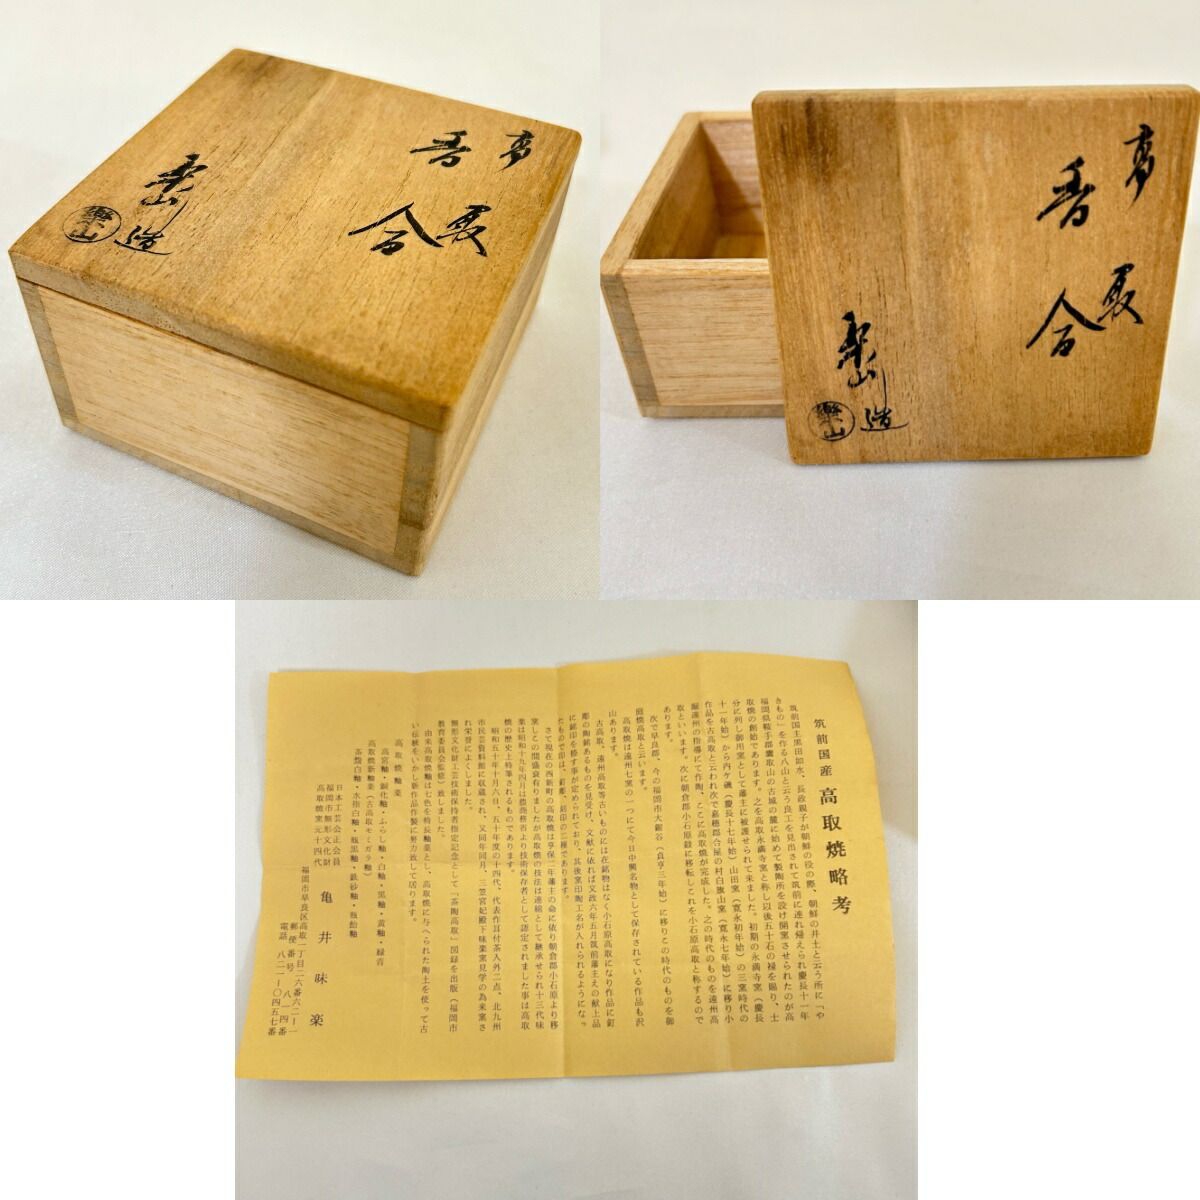 高取
香合
楽山造
樂山
高取
香合
楽山造
樂山
筑前国産 高取焼略考
筑前国主黒田如水、長政親子が朝鮮の役の際、朝鮮の井土と云う所に「や
きもの」を作る八山と云う良工を見出されて筑前に連れ帰えられ慶長十一年
福岡県鞍手郡鷹取山の古城の麓に始めて製陶所を設け開窯させられたのが高
取焼の創始であります。之を高取永満寺窯と称し以後五十石の禄を賜り、士
分に列し御用窯として藩主に被護せられて来ました。初期の永満寺窯(慶長
十一年始)から内ケ磯(慶長十七年始)山田窯(寛永初年始)の三窯時代の
作品を古高取と云われ次で嘉穂郡合屋の村白旗山窯(寛永七年始)に移り小
堀遠州の指導にて作陶、ここに高取焼が完成した。之の時代のものを遠州高
取といいます。次に朝倉郡小石原鼓に移転しこれを小石原高取と称するので
あります。
次で早良郡、今の福岡市大鋸谷(貞亨三年始)に移りこの時代のものを御
庭焼高取と云います。
高取焼は遠州七窯の一つにて今日中興名物として保存されている作品も沢
山あります。
古高取、遠州高取等古いものには在銘物はなく小石原高取になり作品に釘
彫の陶銘あるものを見受け、文献に依れば文政六年五月筑前藩主えの献上品
に銘印を捺す事が定められており、其後窯印陶工名が入れられるようになっ
たもので印は、釘彫、刻印の二種であります。
さて現在の西新町の高取焼は享保二年藩主の命に依り朝倉郡小石原より移
窯しこの間盛衰有りましたが高取焼の技法は連綿として継承せられ十三代味
楽は昭和十九年四月は農商務省より技術保存者として認定されました事は高取
焼の歴史上特筆されるものであります。
昭和五十年十月六日、五十年度の十四代、代表作耳付茶入外二点、北九州
市民芸資料館に収蔵され、又同年同月、三笠宮妃殿下味楽窯見学の為来窯さ
れ栄誉によくしました。
無形文化財工芸技術保持者指定記念として「茶陶高取」図録を出版(福岡市
教育委員会監修)致しました。
由来高取焼釉は七色を特長釉薬とし、高取焼に与へられた陶土を使って古
い伝統をいかし新作品作製に努力致して居ります。
高取焼釉薬
高宮釉・銅化釉・ふらし釉・白釉・黒釉・黄釉・緑青
高取焼新釉薬(古高取モミガラ釉)
茶類白釉・水指白釉・瓶黒釉・鉄砂釉・瓶飴釉
日本工芸会正会員
福岡市無形文化財
高取焼窯元十四代 亀井味楽
福岡市早良区高取一丁目二六番六二ー一
郵便番号 八一四番
電話 八二一ー〇四五七番